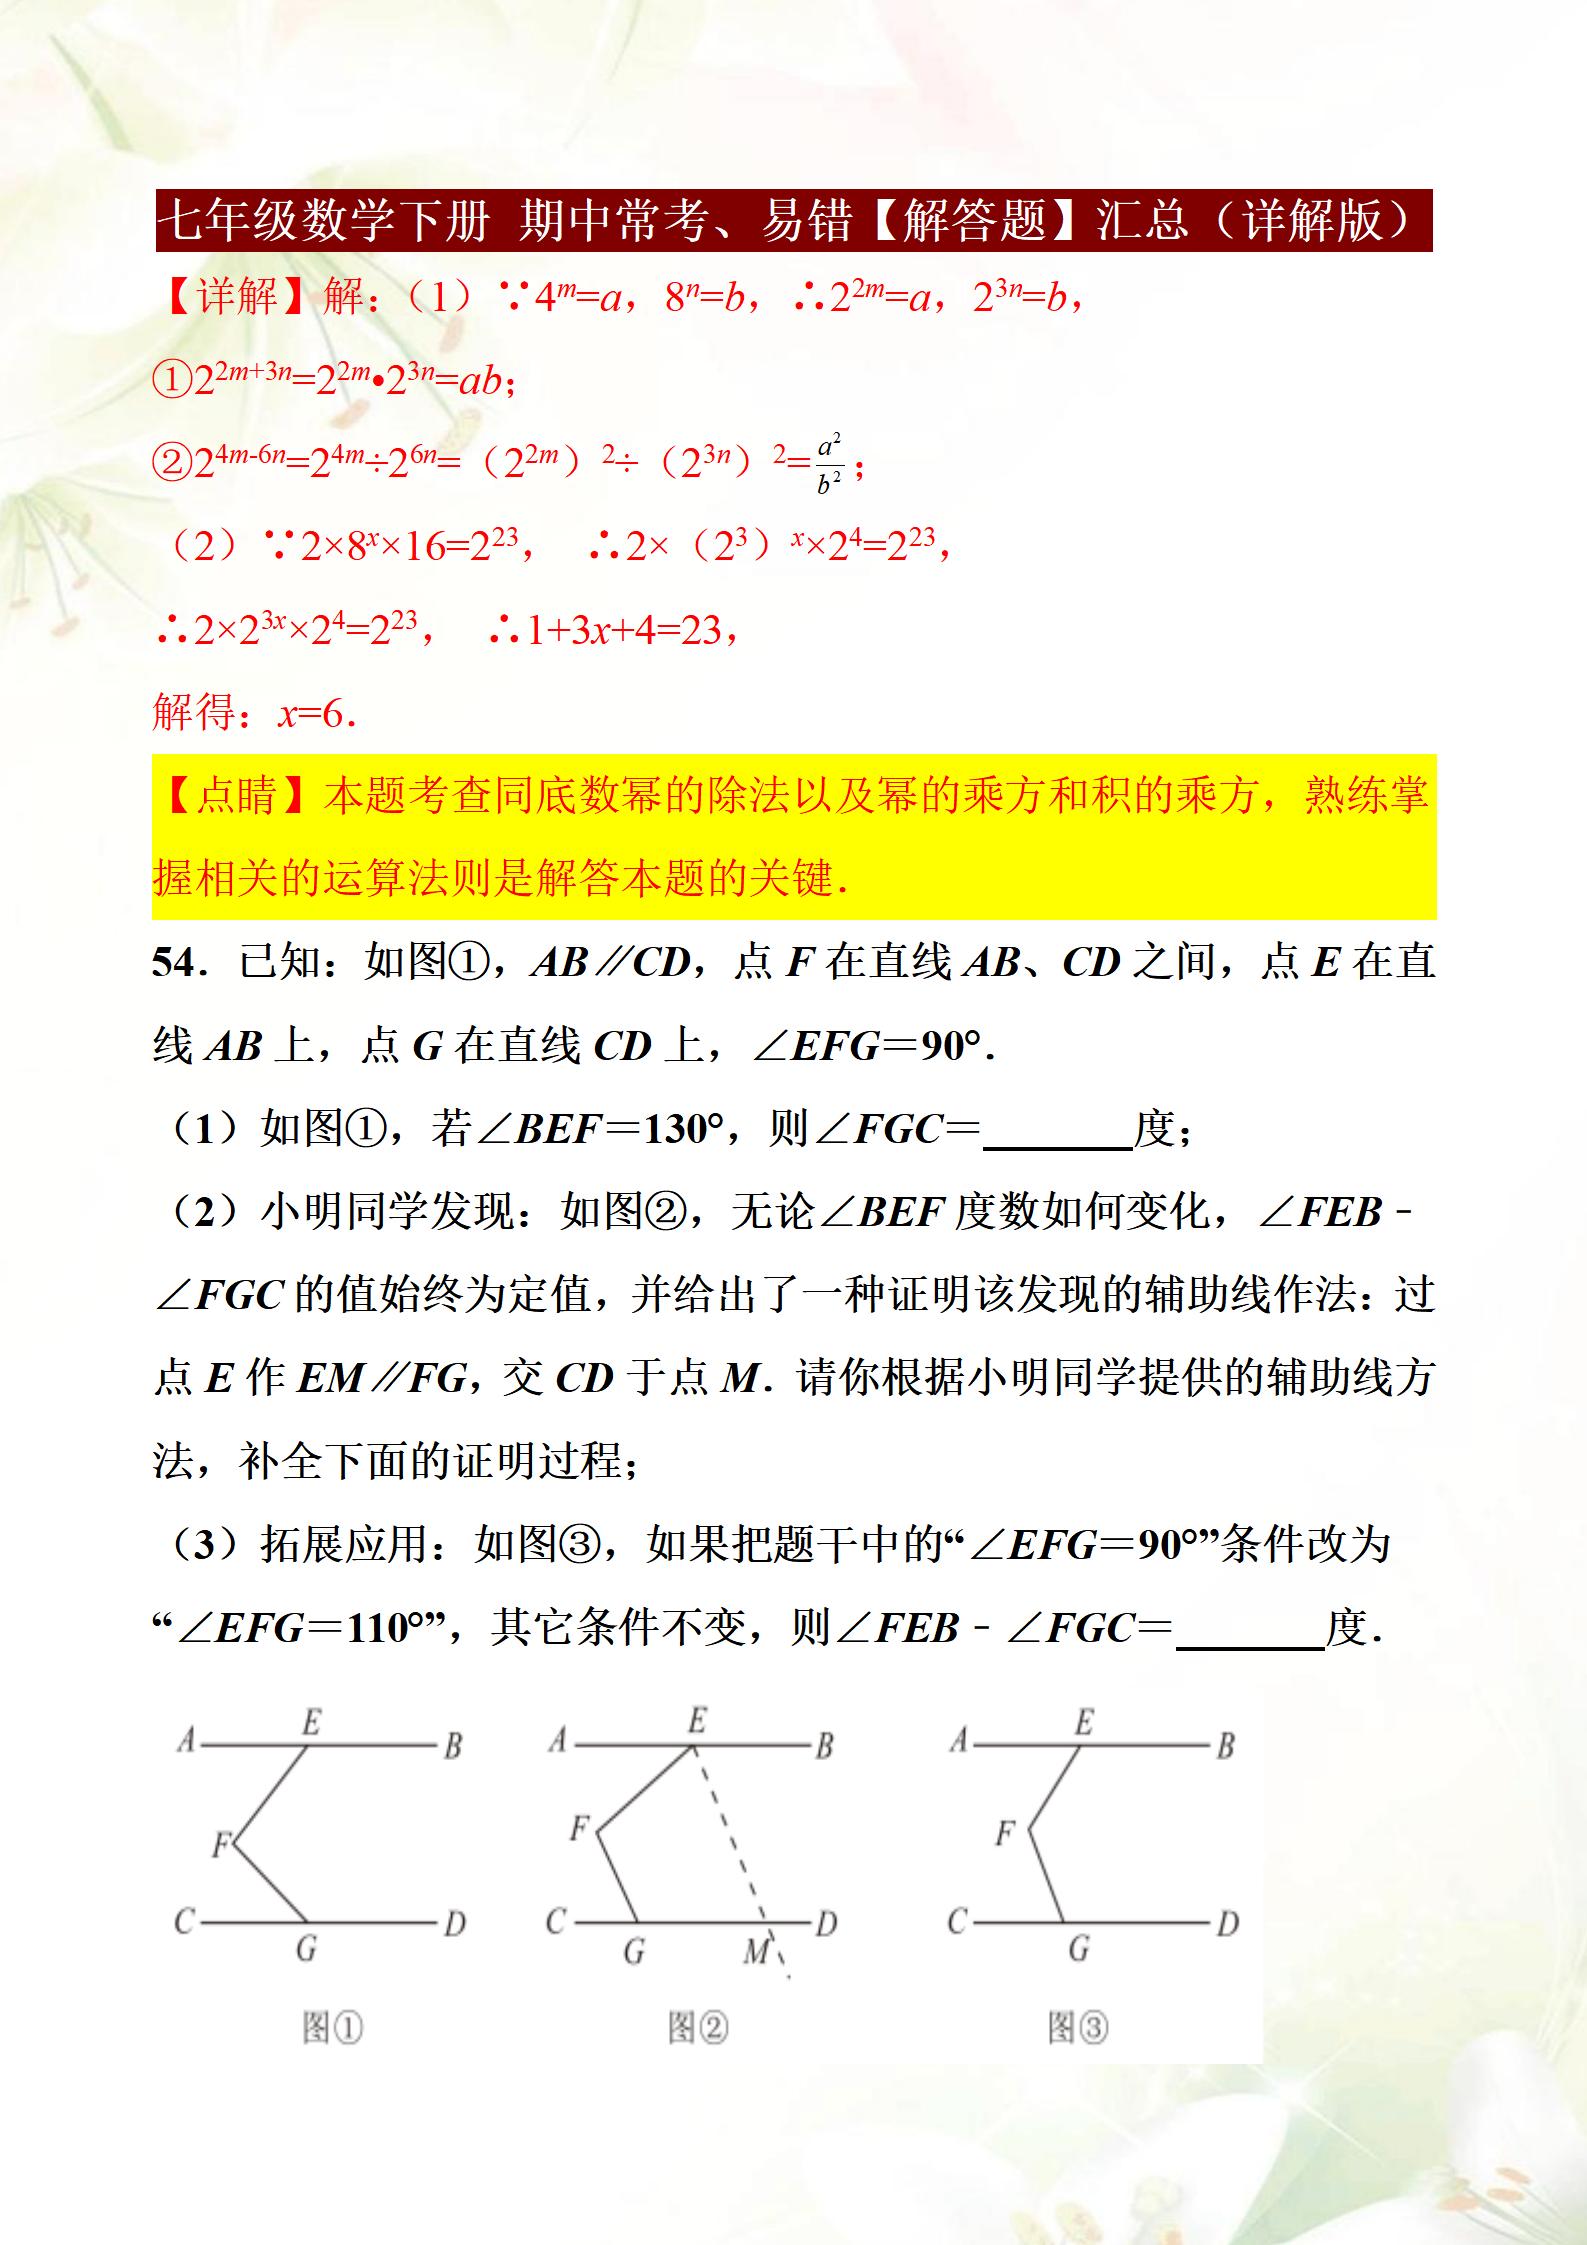 七年级数学下册 期中常考、易错【解答题】汇总（详解版）
【详解】解：（1）∵4^m=a，8^n=b，∴2^{2m}=a，2^{3n}=b，
①2^{2m+3n}=2^{2m}•2^{3n}=ab；
②2^{4m-6n}=2^{4m}÷2^{6n}=（2^{2m}）^2÷（2^{3n}）^2=\frac{a^2}{b^2}；
（2）∵2×8^x×16=2^{23}， ∴2×（2^3）^x×2^4=2^{23}，
∴2×2^{3x}×2^4=2^{23}， ∴1+3x+4=23，
解得：x=6．
【点睛】本题考查同底数幂的除法以及幂的乘方和积的乘方，熟练掌
握相关的运算法则是解答本题的关键．
54．已知：如图①，AB∥CD，点 F 在直线 AB、CD 之间，点 E 在直
线 AB 上，点 G 在直线 CD 上，∠EFG＝90°．
（1）如图①，若∠BEF＝130°，则∠FGC＝_______度；
（2）小明同学发现：如图②，无论∠BEF 度数如何变化，∠FEB﹣
∠FGC 的值始终为定值，并给出了一种证明该发现的辅助线作法：过
点 E 作 EM∥FG，交 CD 于点 M．请你根据小明同学提供的辅助线方
法，补全下面的证明过程；
（3）拓展应用：如图③，如果把题干中的“∠EFG＝90°”条件改为
“∠EFG＝110°”，其它条件不变，则∠FEB﹣∠FGC＝_______度．
A E B F C G D
A E B F C G M D
A E B F C G D
图① 图② 图③